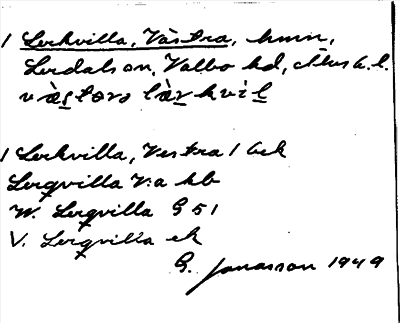 1 Lerkvilla, Västra, hmn,
Lerdals sn, Valbo hd, Älvsb. l.
1 Lerkvilla, Vestra 1 Gek
Lerqvilla V:a kb
W. Lerqvilla G 51
V. Lerqvilla ek
G. Jonasson 1949